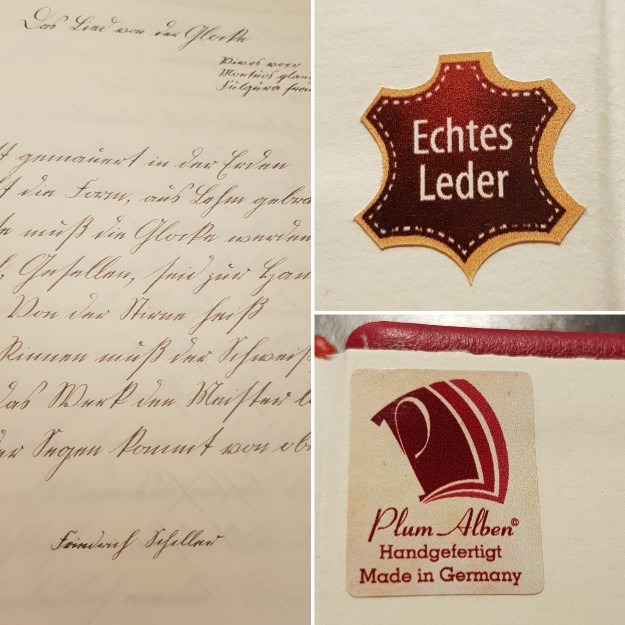 Das Lied von der Glocke
Vivos voco
Mortuos plan
Fulgura fran
t gemauert in der Erden
t die Form, aus Lehm gebra
te muß die Glocke werden
Gesellen, seid zur Han
Von der Stirne heiß
Rinnen muß der Schweiß
das Werk den Meister
er Segen kommt von ob
Friedrich Schiller
Echtes
Leder
Plum Alben©
Handgefertigt
Made in Germany